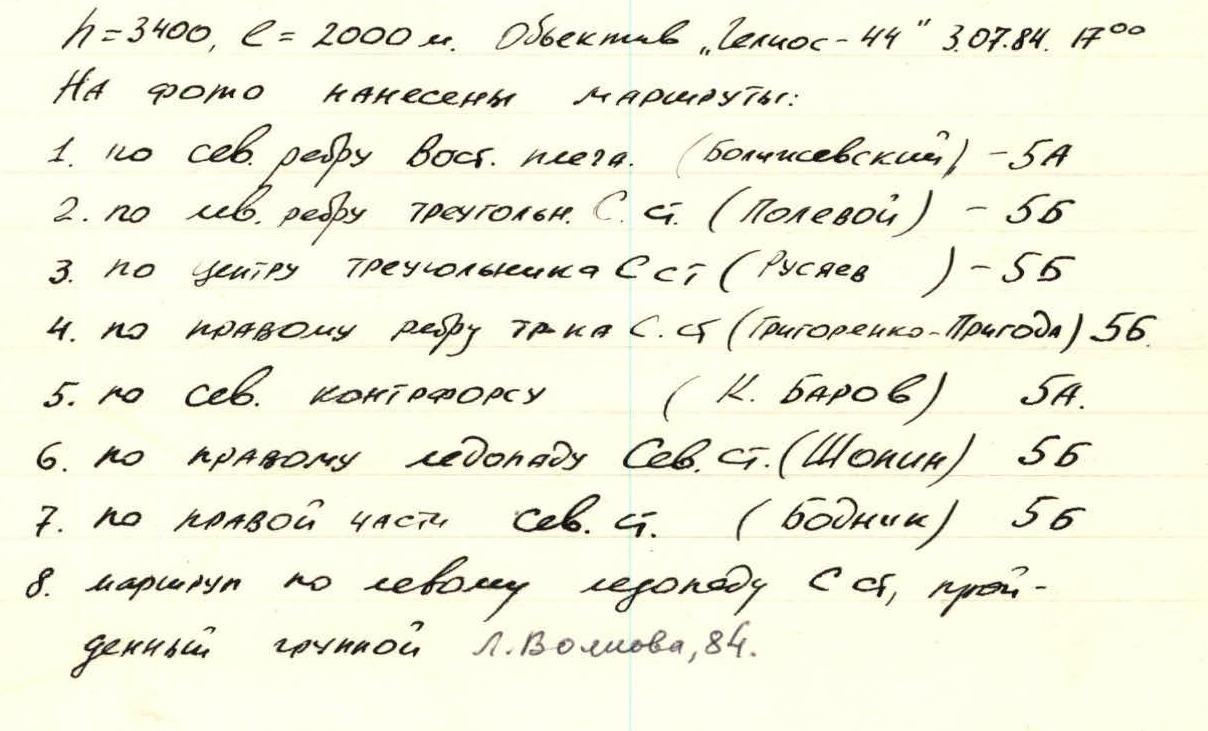 h=3400, l= 2000 м. Объектив „Гелиос-44" 3.07.84. 17⁰⁰
На фото нанесены маршруты:
1. по сев. ребру Вост. плеча. (Болижевский) -5А
2. по лев. ребру треугольн. С. ст. (Полевой) - 5Б
3. по центру треугольника С ст (Русяев ) - 5Б
4. по правому ребру тр-ка С. ст (Григоренко-Пригода) 5Б.
5. по сев. контрфорсу ( К. Баров) 5А.
6. по правому ледопаду Сев. ст. (Шопин) 5Б
7. по правой части сев. ст. ( Бодник) 5Б
8. маршрут по левому ледопаду С ст, прой-
денный группой Л. Волкова, 84.